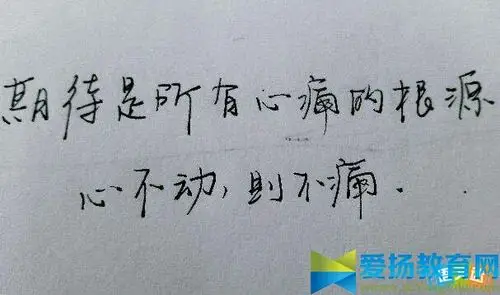 期待是所有心痛的根源
心不动,则不痛.
爱扬教育网